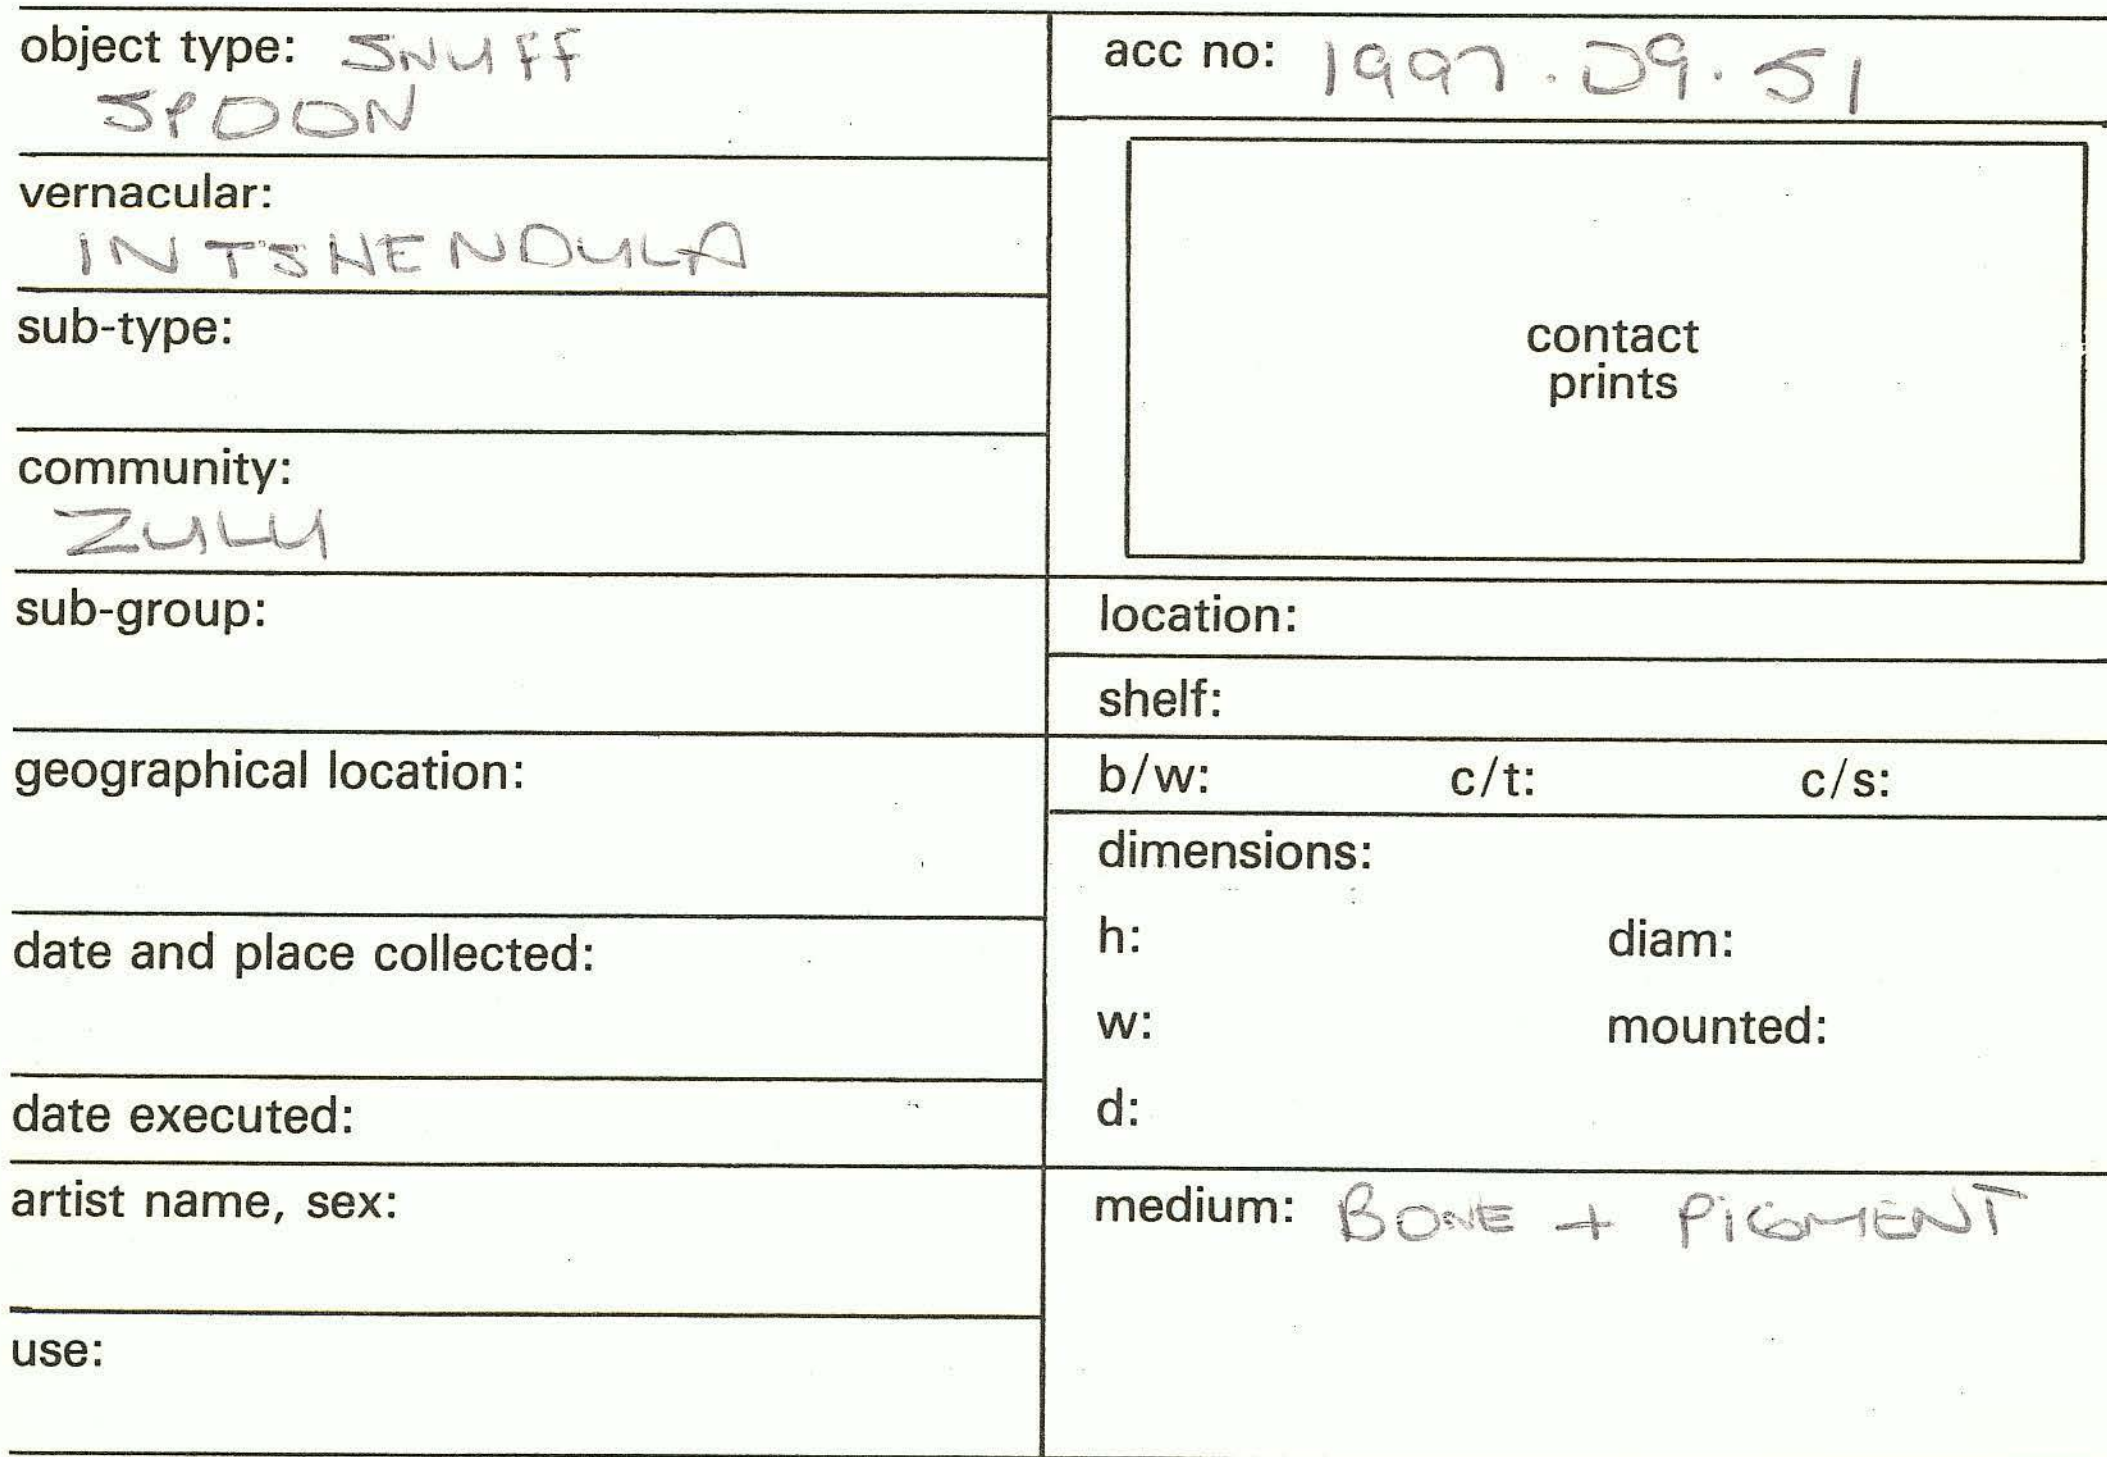 object type: SNUFF
SPOON
vernacular:
INTSHENDULA
sub-type:
community:
ZULU
sub-group:
geographical location:
date and place collected:
date executed:
artist name, sex:
use:
acc no: 1997.09.51
contact
prints
location:
shelf:
b/w: c/t: c/s:
dimensions:
h: diam:
w: mounted:
d:
medium: BONE + PIGMENT